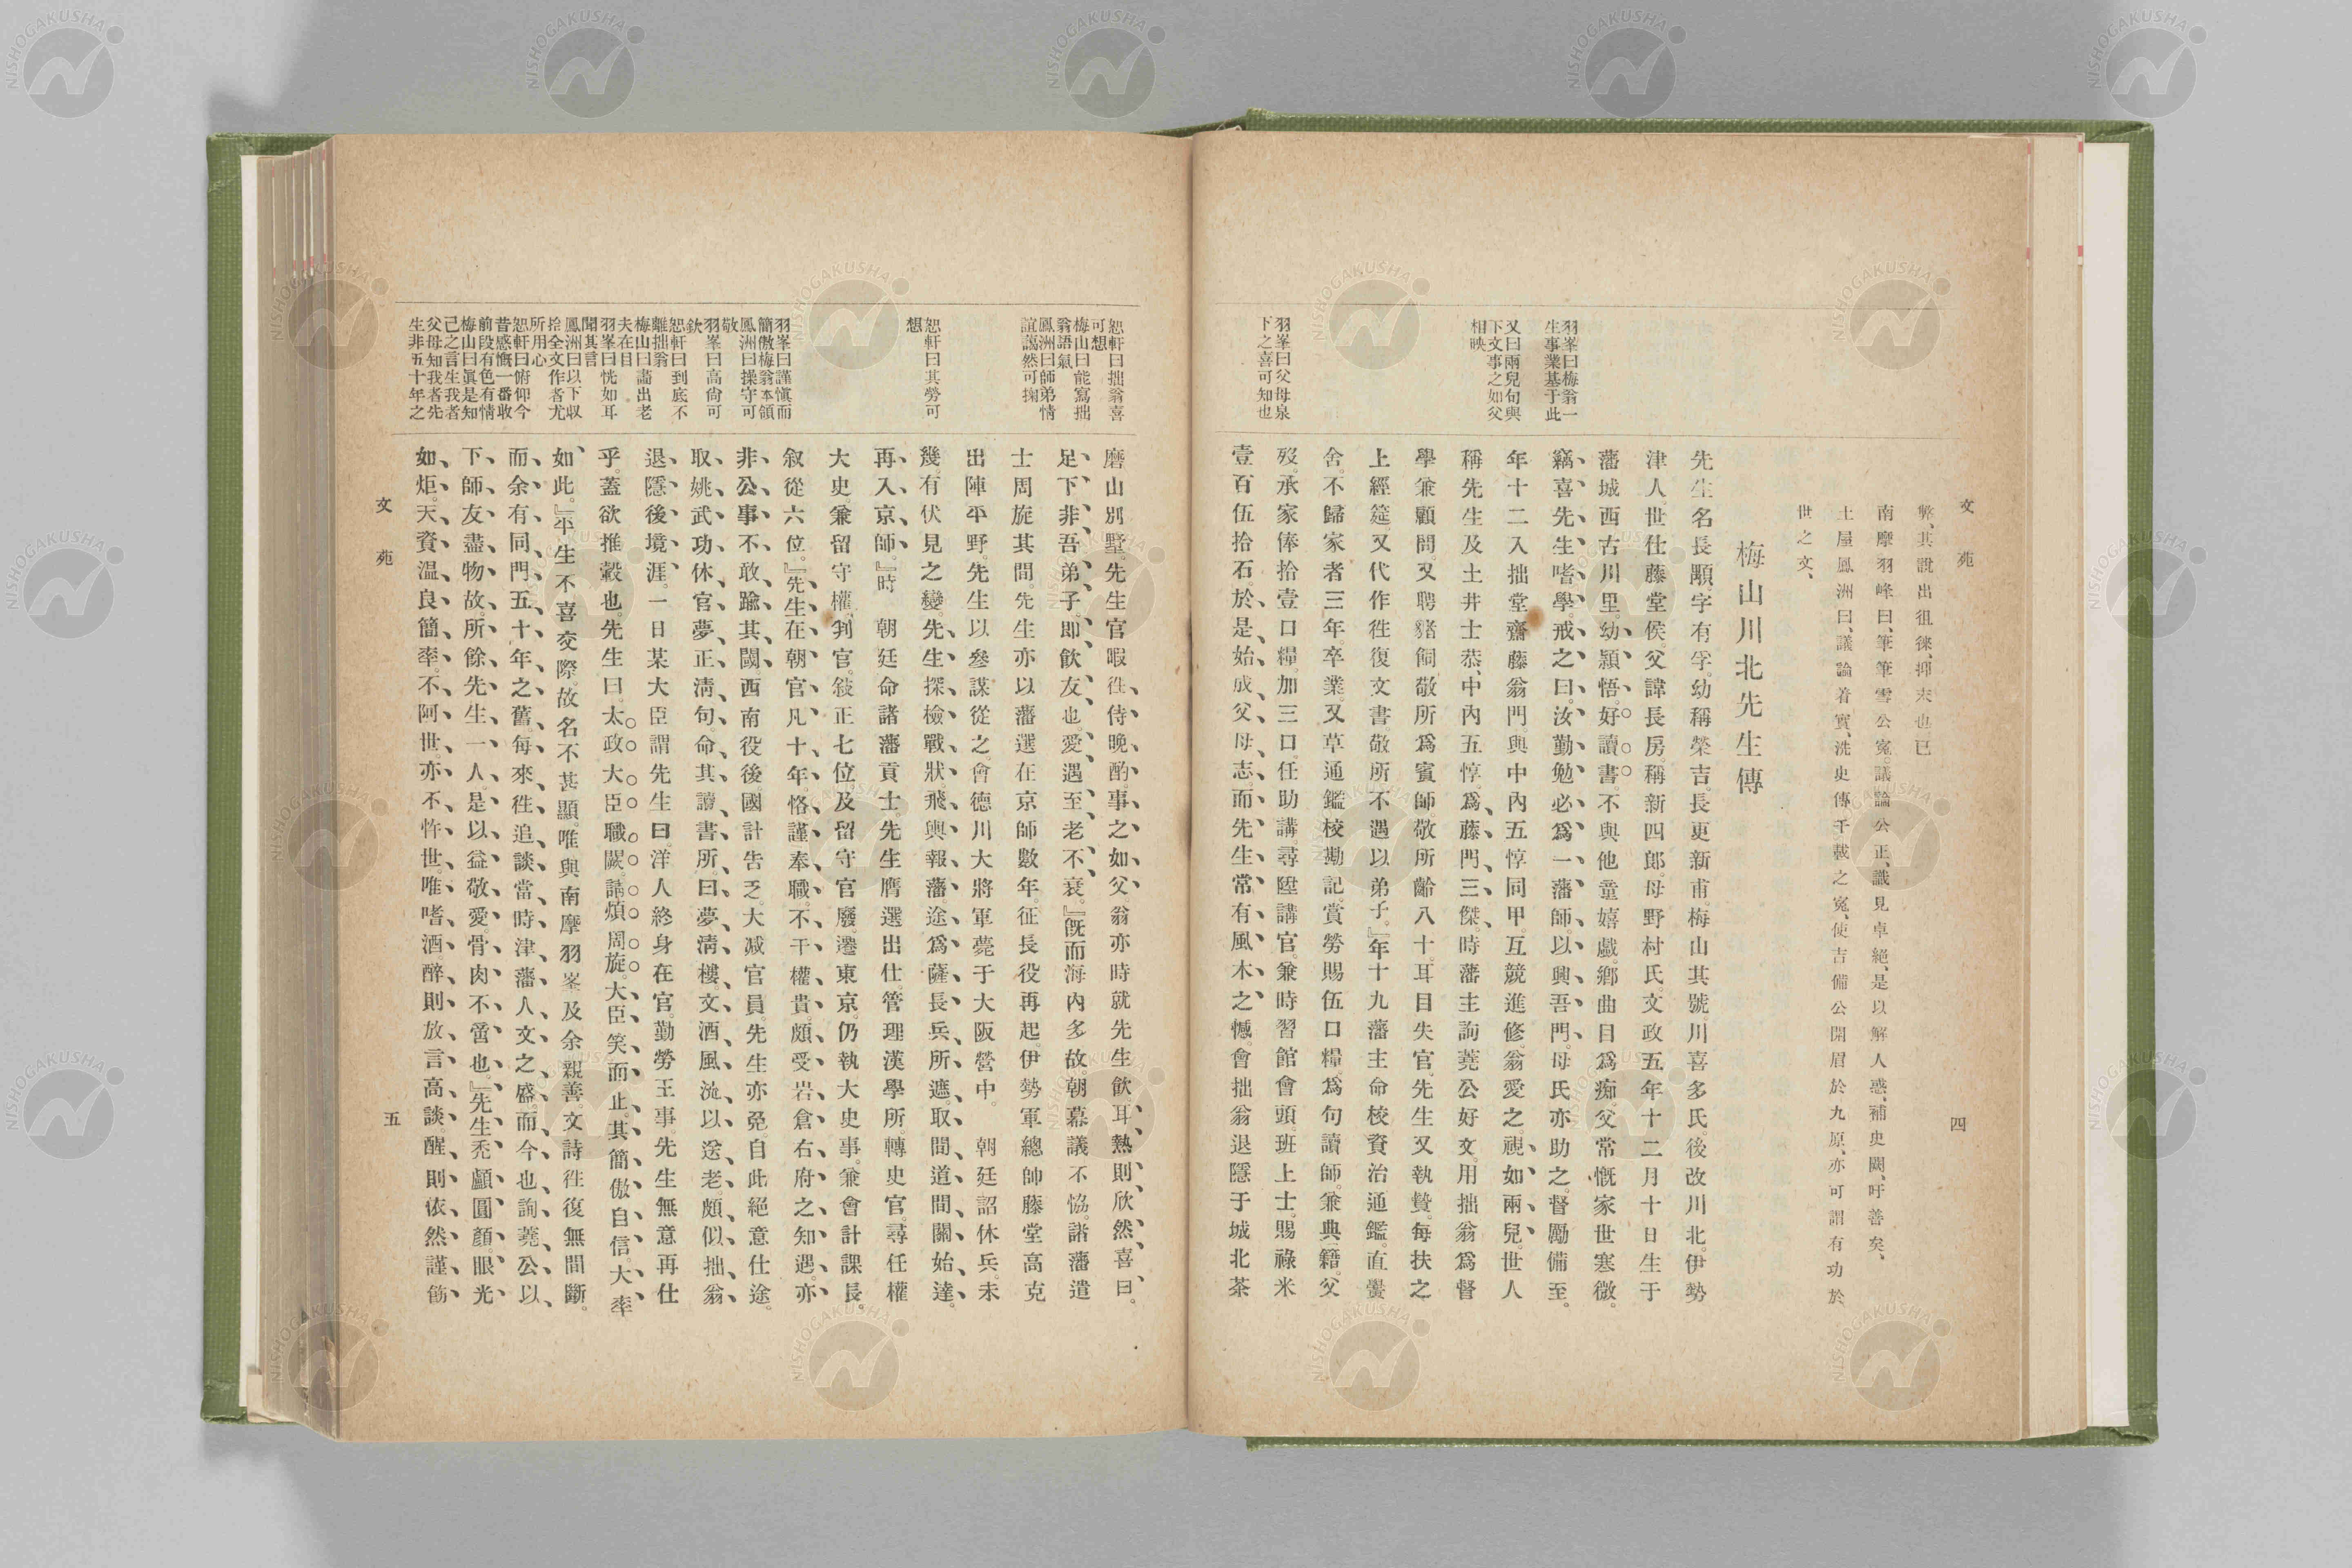 文苑
四
弊、其說出徂徠、抑末也已
南摩羽峰曰、筆筆雪公冤。議論公正、識見卓絕、是以解人惑、補史闕、吁善矣、
土屋鳳洲曰、議論着實、洗史傳千載之冤、使吉備公開眉於九原、亦可謂有功於
世之文、
梅山川北先生傳
羽峯曰梅翁一
生事業基于此
又曰兩兒句與
下文事之如父
相映
羽峯曰父母泉
下之喜可知也
先生名長顒。字有孚。幼稱榮吉。長更新甫。梅山其號。川喜多氏。後改川北。伊勢
津人。世仕藤堂侯。父諱長房。稱新四郎。母野村氏。文政五年十二月十日生于
藩城西古川里。幼穎悟。好讀書。不與他童嬉戲。鄉曲目爲痴。父常慨家世寒微。
竊喜先生嗜學。戒之曰。汝勤勉必爲一藩師。以興吾門。母氏亦助之。督勵備至。
年十二入拙堂齋藤翁門。與中內五惇同甲互競進修。翁愛之。視如兩兒。世人
稱先生及土井士恭、中內五惇。爲藤門三傑。時藩主詢蕘公好文。用拙翁爲督
學兼顧問。又聘豬飼敬所爲賓師。敬所齡八十。耳目失官。先生又執贄。每扶之
上經筵。又代作往復文書。敬所不遇以弟子。』年十九藩主命校資治通鑑。直黌
舍。不歸家者三年。卒業。又草通鑑校勘記。賞勞賜伍口糧。爲句讀師。兼典籍。父
歿。承家俸拾壹口糧。加三口。任助講。尋陞講官。兼時習館會頭。班上士。賜祿米
壹百伍拾石。於是始成父母志。而先生常有風木之憾。會拙翁退隱于城北茶
恕軒曰拙翁喜
可想
梅山曰能寫拙
翁語氣
鳳洲曰師弟情
誼藹然可掬
恕軒曰其勞可
想
羽峯曰謹愼而
簡傲梅翁本領
鳳洲曰操守可
敬
羽峯曰高尙可
欽
恕軒曰到底不
離拙翁
梅山曰畵出老
夫在目
羽峯曰恍如耳
聞其言
鳳洲曰以下収
拾全文作者尤
所用心
恕軒曰俯仰今
昔感慨一番收
前段有色有情
梅山曰眞是知
己之言生我者
父母知我者先
生非五十年之
磨山別墅。先生官暇往侍晚酌。事之如父。翁亦時就先生飮。耳熱則欣然喜曰。
足下非吾弟子。卽飮友也。愛遇至老不衰。』旣而海內多故。朝幕議不協。諸藩遣
士周旋其間。先生亦以藩選在京師數年。征長役再起。伊勢軍總帥藤堂高克
出陣平野。先生以參謀從之。會德川大將軍薨于大阪營中。朝廷詔休兵。未
幾。有伏見之變。先生探檢戰狀。飛輿報藩。途爲薩長兵所遮。取間道間關始達。
再入京師。』時 朝廷命諸藩貢士。先生膺選出仕。管理漢學所。轉史官。尋任權
大史。兼留守權判官。敍正七位及留守官廢。遷東京。仍執大史事。兼會計課長。
叙從六位。』先生在朝官凡十年。恪謹奉職。不干權貴。頗受岩倉右府之知遇。亦
非公事不敢踰其閾。西南役後。國計告乏。大减官員。先生亦免自此絕意仕途。
取姚武功休官夢正淸句。命其讀書所曰夢淸樓。文酒風流以送老。頗似拙翁
退隱後境涯。一日某大臣謂先生曰。洋人終身在官。勤勞王事。先生無意再仕
乎。蓋欲推轂也。先生曰。太政大臣職闕。請煩周旋。大臣笑而止。其簡傲自信大率
如此。』平生不喜交際。故名不甚顯。唯與南摩羽峯及余親善。文詩往復無間斷。
而余有同門五十年之舊。每來往追談當時津藩人文之盛。而今也詢蕘公以
下師友盡物故。所餘先生一人。是以益敬愛。骨肉不啻也。』先生禿顱圓顏。眼光
如炬。天資溫良簡率。不阿世。亦不忤世。唯嗜酒。醉則放言高談。醒則依然謹飭
文苑
五